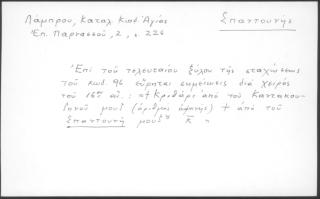 Λάμπρου, Καταλ. Κωδ. Ἁγίας
Ἐπ. Παρνασσοῦ, 2, σ. 226
Σπαντουνής
Ἐπὶ τοῦ τελευταίου ξύλου τῆς σταχώσεως
τοῦ κωδ. 96 εὕρηται σημείωσις διὰ χειρὸς
τοῦ 16ου αἰ.: «+ Κριθάρι ἀπὸ τοῦ Καντακου-
ζηνοῦ μουζ (ἀριθμὸς ἀφανής) + ἀπὸ τοῦ
Σπαντουνῆ μουζ κ "